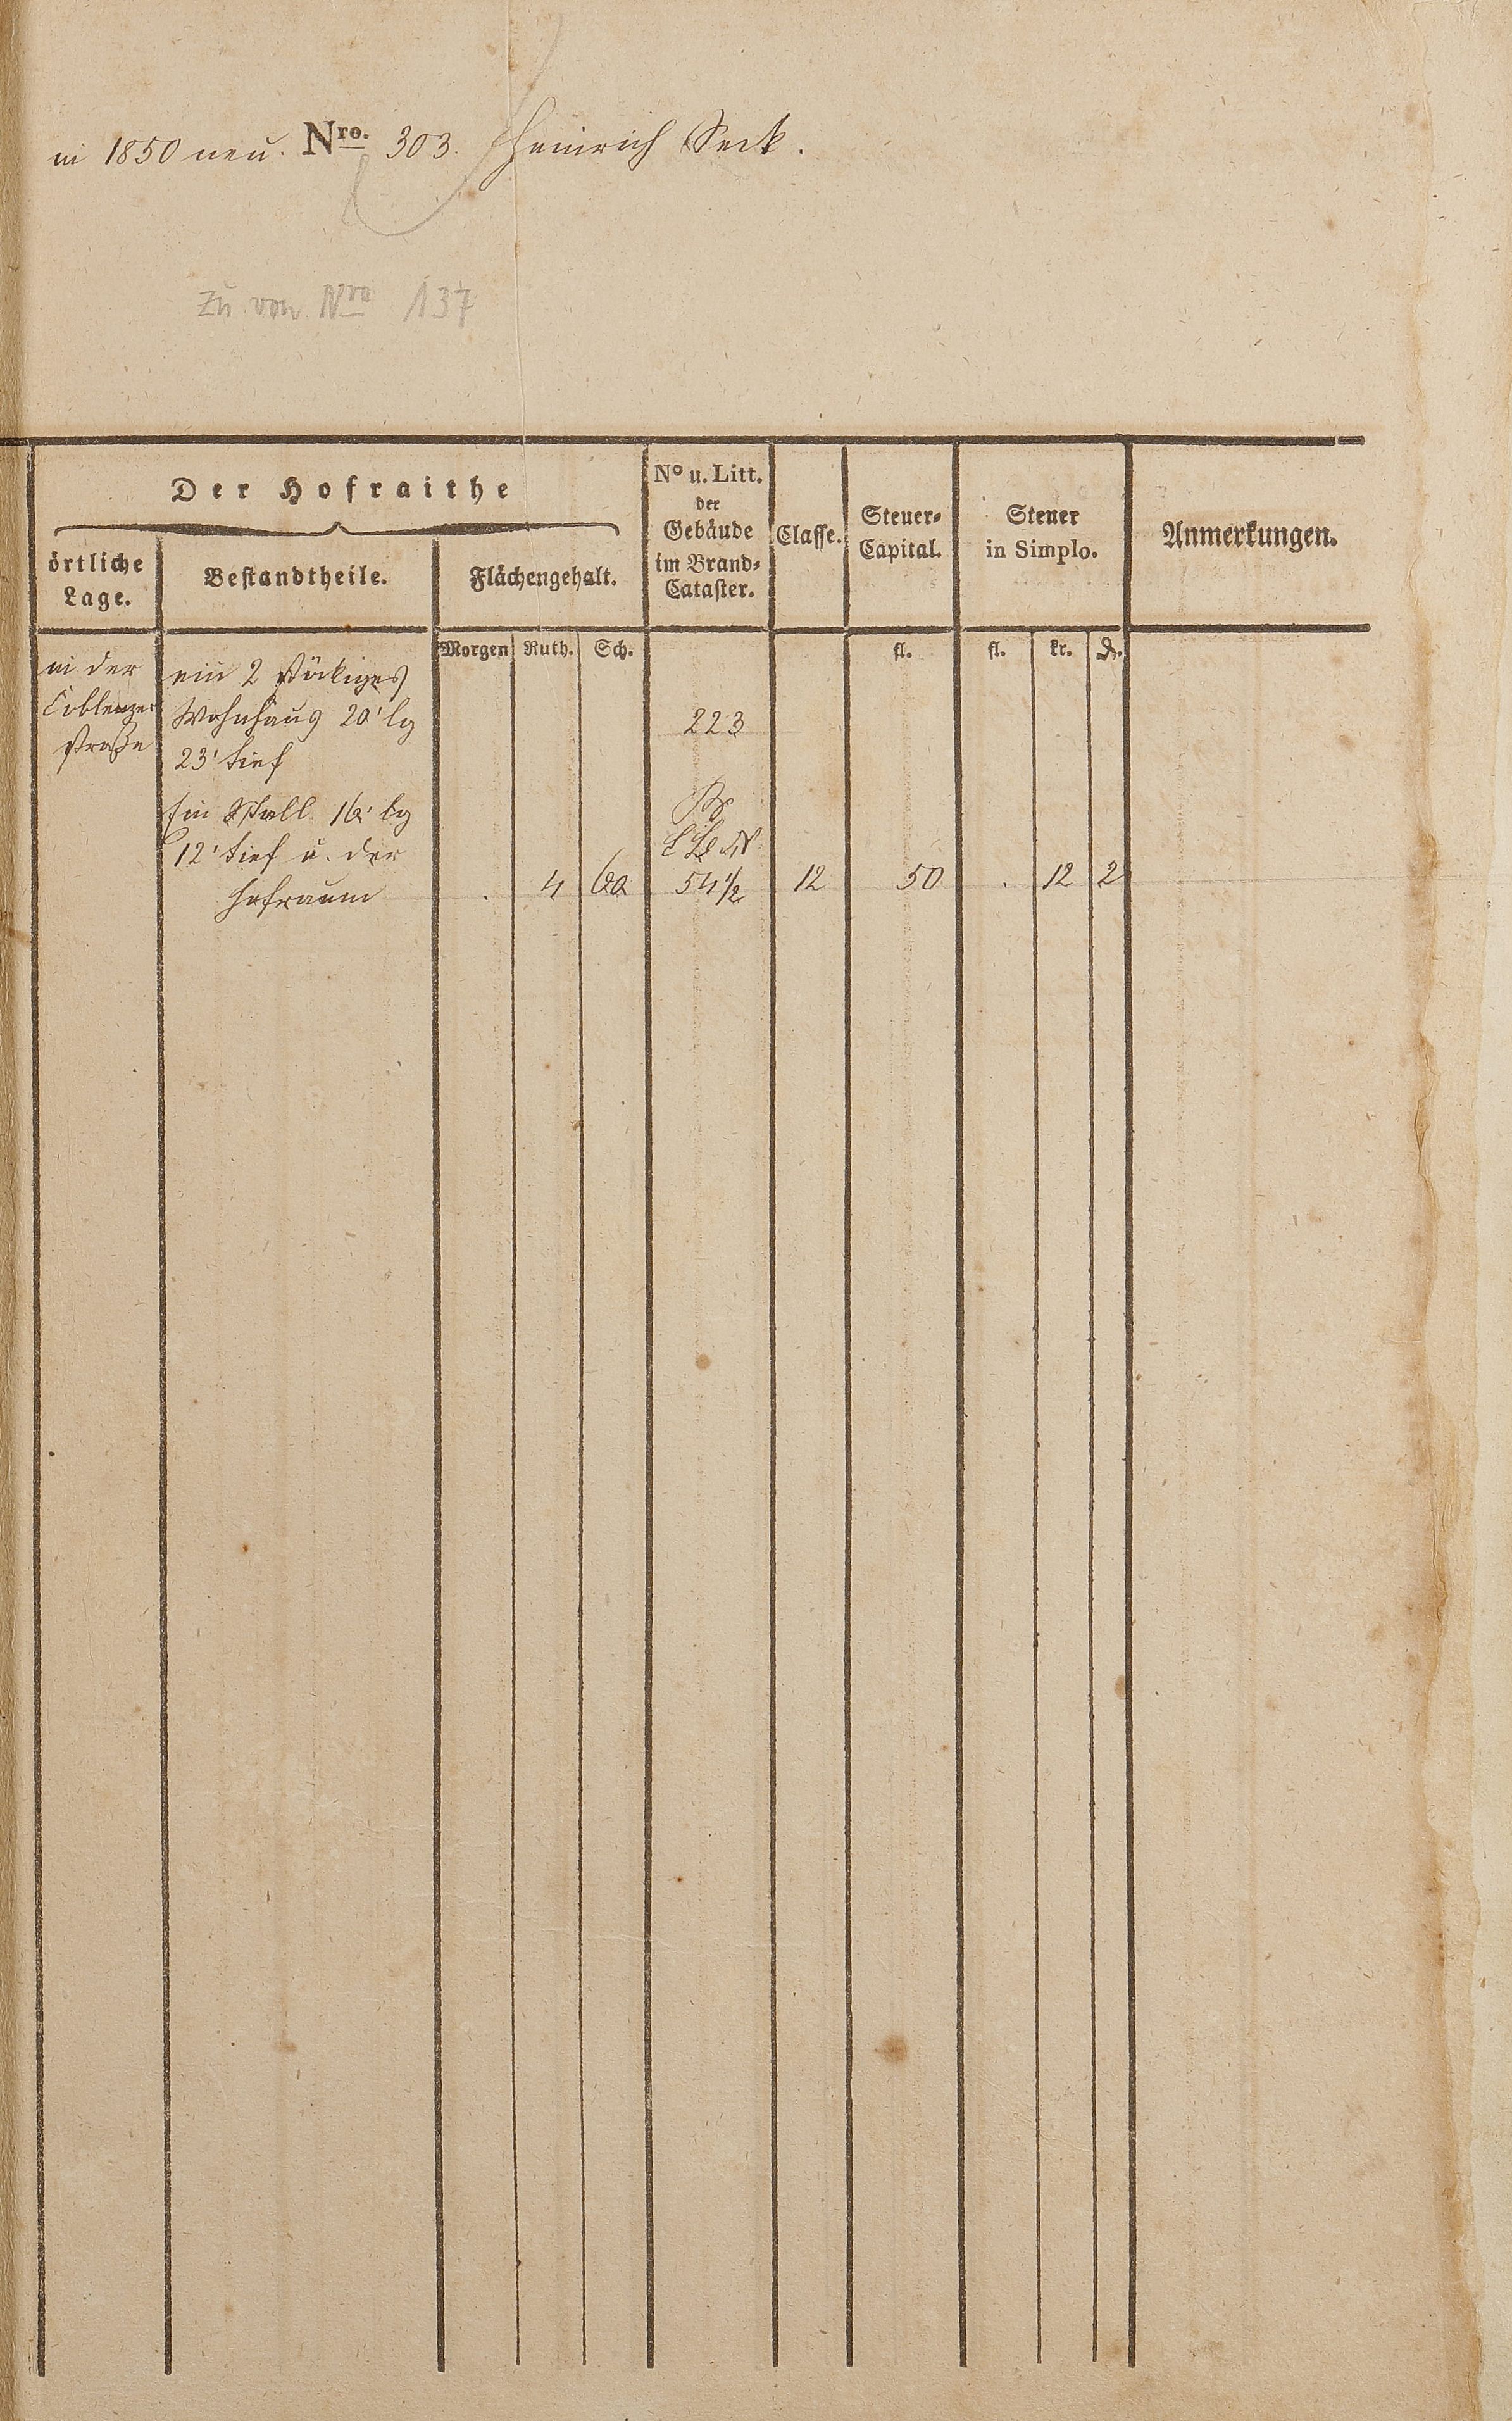 in 1850 neu. Nro. 303. Heinrich Seck.
zu von Nro 137
Der Hofraithe
örtliche Lage.
Bestandtheile.
Flächengehalt.
No u. Litt. der Gebäude im Brand-Cataster.
Classe.
Steuer-Capital.
Steuer in Simplo.
Anmerkungen.
Morgen Ruth. Sch. fl. fl. kr. d.
in der
Coblenzer
straße
ein 2 stöckiges
Wohnhaus 20' lg
23' tief
223
Ein Stall 16' lg
12' tief u. der
Hofraum
. 4 60 54 1/2 12 50 . 12 2